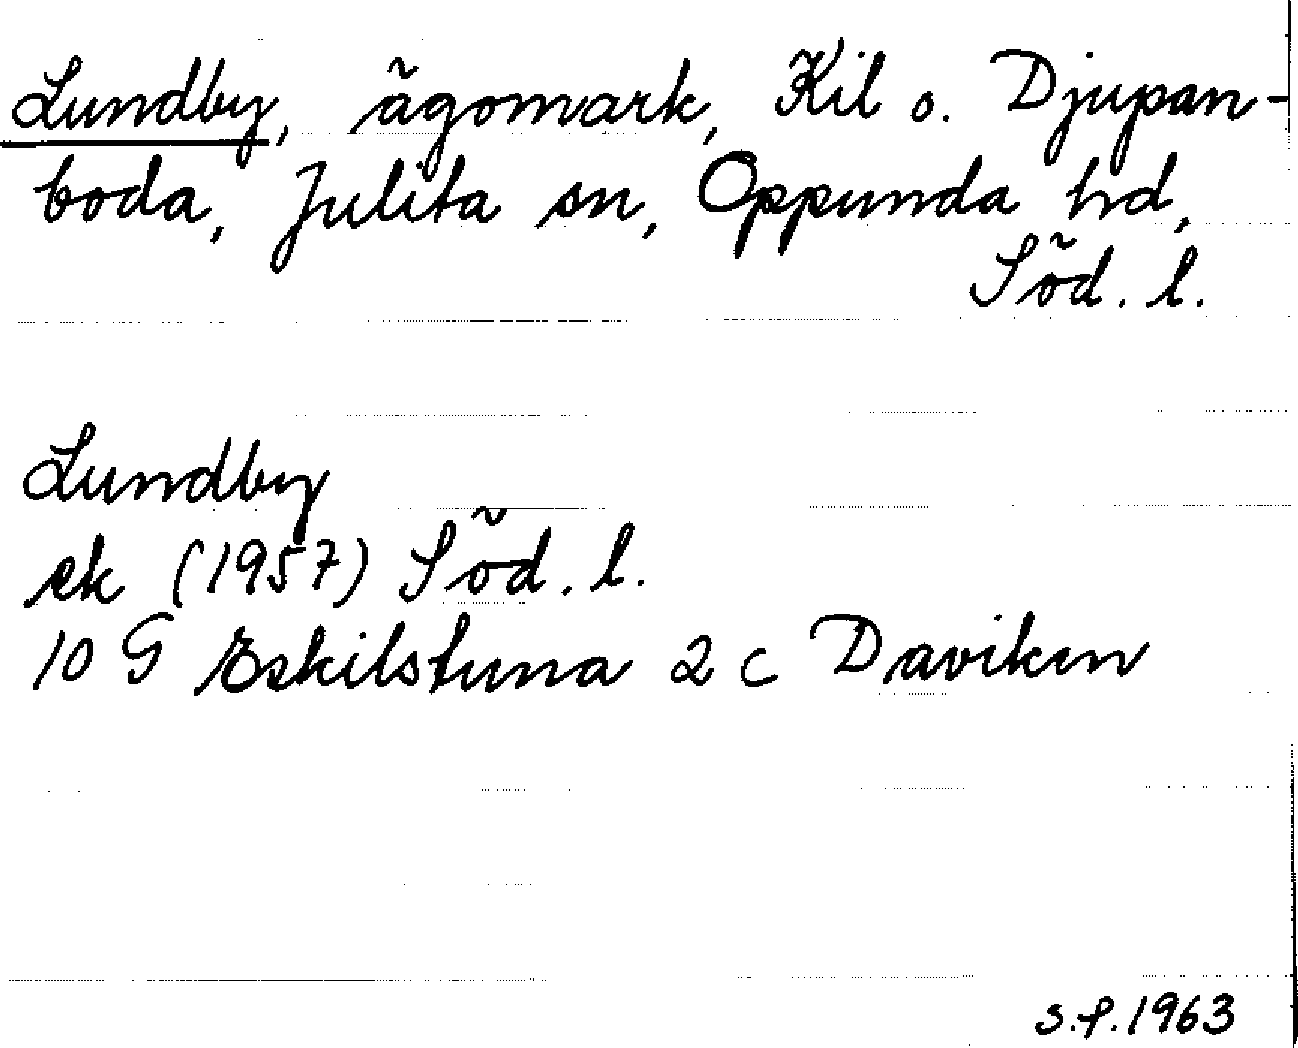 Lundby, ägomark, Kil o. Djupan-
boda, Julita sn, Oppunda hd,
Söd. l.
Lundby
ek (1957) Söd. l.
10 G Eskilstuna 2 c Daviken
s.f. 1963